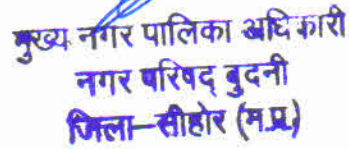 मुख्य नगर पालिका अधिकारी
नगर परिषद् बुदनी
जिला—सीहोर (म.प्र.)